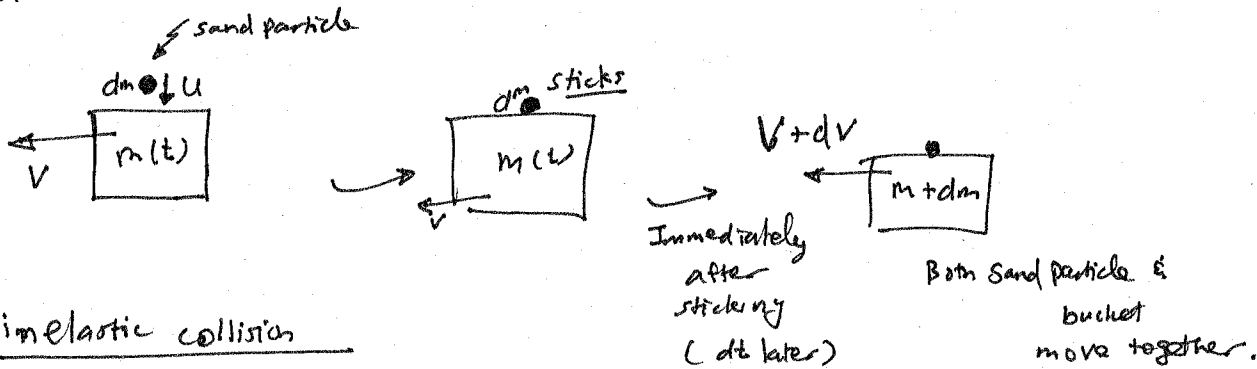 sand particle
dm u
m(t)
V
dm sticks
m(t)
v
Immediately
after
sticking
(dt later)
V+dV
m+dm
Both sand particle &
bucket
move together.
inelastic collision